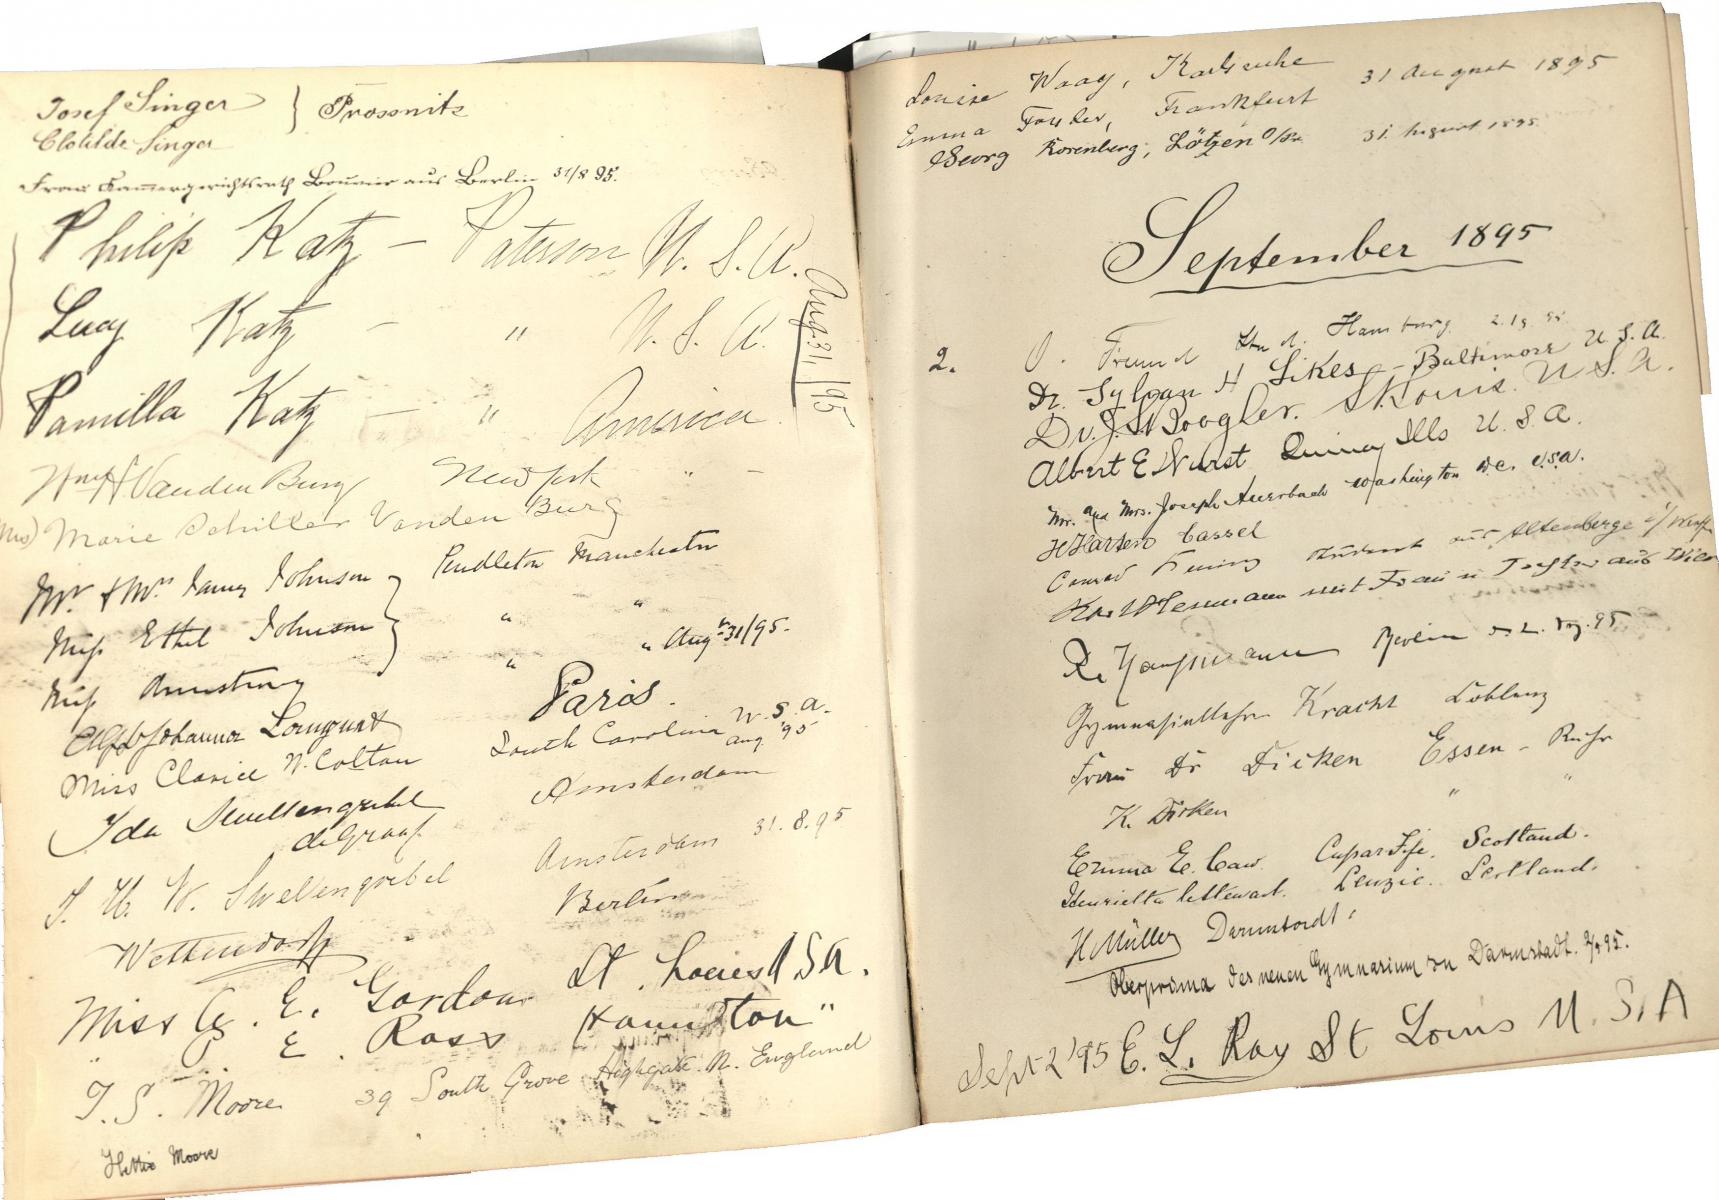 Josef Singer } Prossnitz
Clotilde Singer
Frau Kammergerichtsrath Bouvier aus Berlin 31/8 95.
Philip Katz — Paterson U. S. A.
Lucy Katz — " U. S. A.
Pamilla Katz — " America
Aug. 31/95
Wm H Vanden Burg New York " —
Mrs) Marie Schiller Vanden Burg
Mr. & Mrs James Johnson } Pendleton Manchester
Miss Ethel Johnson " "
Miss Armstrong " " Augt 31/95.
Johannes Paris.
Miss Clarice W. Colton South Carolina U. S. A.
Aug. '95
Ida Swellengrebel Amsterdam
de Graaf
J. H. W. Swellengrebel Amsterdam 31. 8. 95
Wettendorff Berlin
Miss G. E. Gordon St. Louis U S A.
" E. Ross Hamilton "
T. S. Moore 39 South Grove Highgate N. England
Hettie Moore
Louise Waag, Karlsruhe 31 August 1895
Emma Frankfurt
Georg Rosenberg, Lötzen O/Pr. 31 August 1895
September 1895
2. O. Freund Hamburg
Dr. Sylvan H Likes — Baltimore U. S. A.
Dr. J. St Louis. U S. A.
Albert E Wurst Quincy Ills U. S. A.
Mr. and Mrs. Joseph Auerbach Washington D.C. U.S.A.
H Karsten Cassel
Conrad Student aus Altenberge i/ Westf
Karl Hermann mit Frau u Tochter aus
R. Kaufmann Berlin 95
Gymnasiallehr. Kracht Coblenz
Frau Dr Dicken Essen - Ruhr
K. Dicken " "
Emma E. Caw. Cupar Fife. Scotland.
Henrietta Stewart. Lenzie. Scotland.
H Müller Darmstadt.
Oberprima des neuen Gymnasium zu Darmstadt. 2/9 95.
Sept 2 '95 E. L. Ray St Louis U. S. A